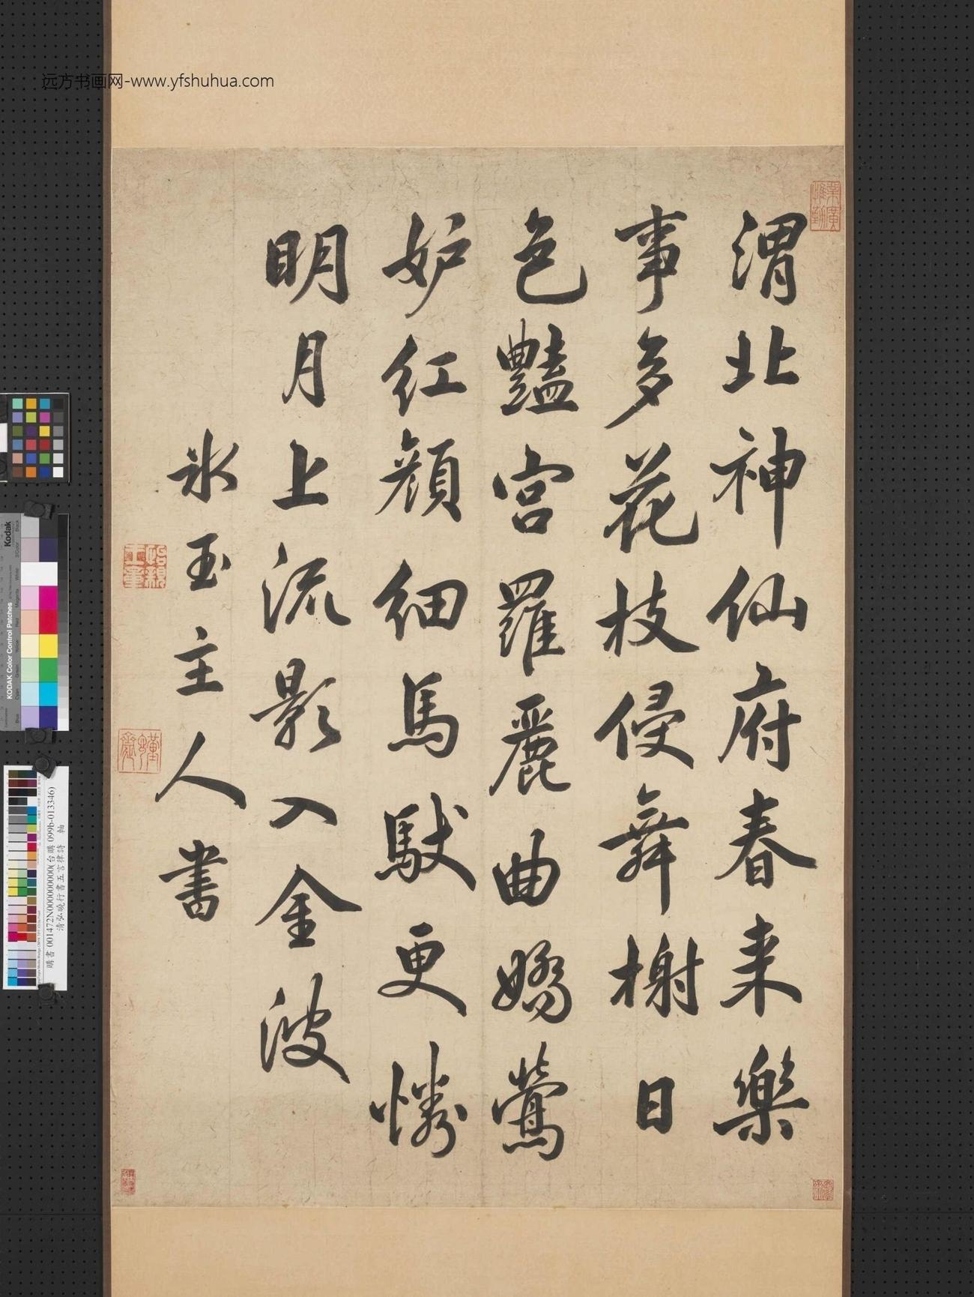 远方书画网-www.yfshuhua.com
渭北神仙府春来樂
事多花枝侵舞榭日
色豔宫羅麗曲嬌鶯
妒红顔細馬馱更憐
明月上流影入金波
氷玉主人書
Kodak
KODAK Color Control Patches
購書 001472N000000000(台購 099b-013346)
清弘曉行書五言律詩 軸